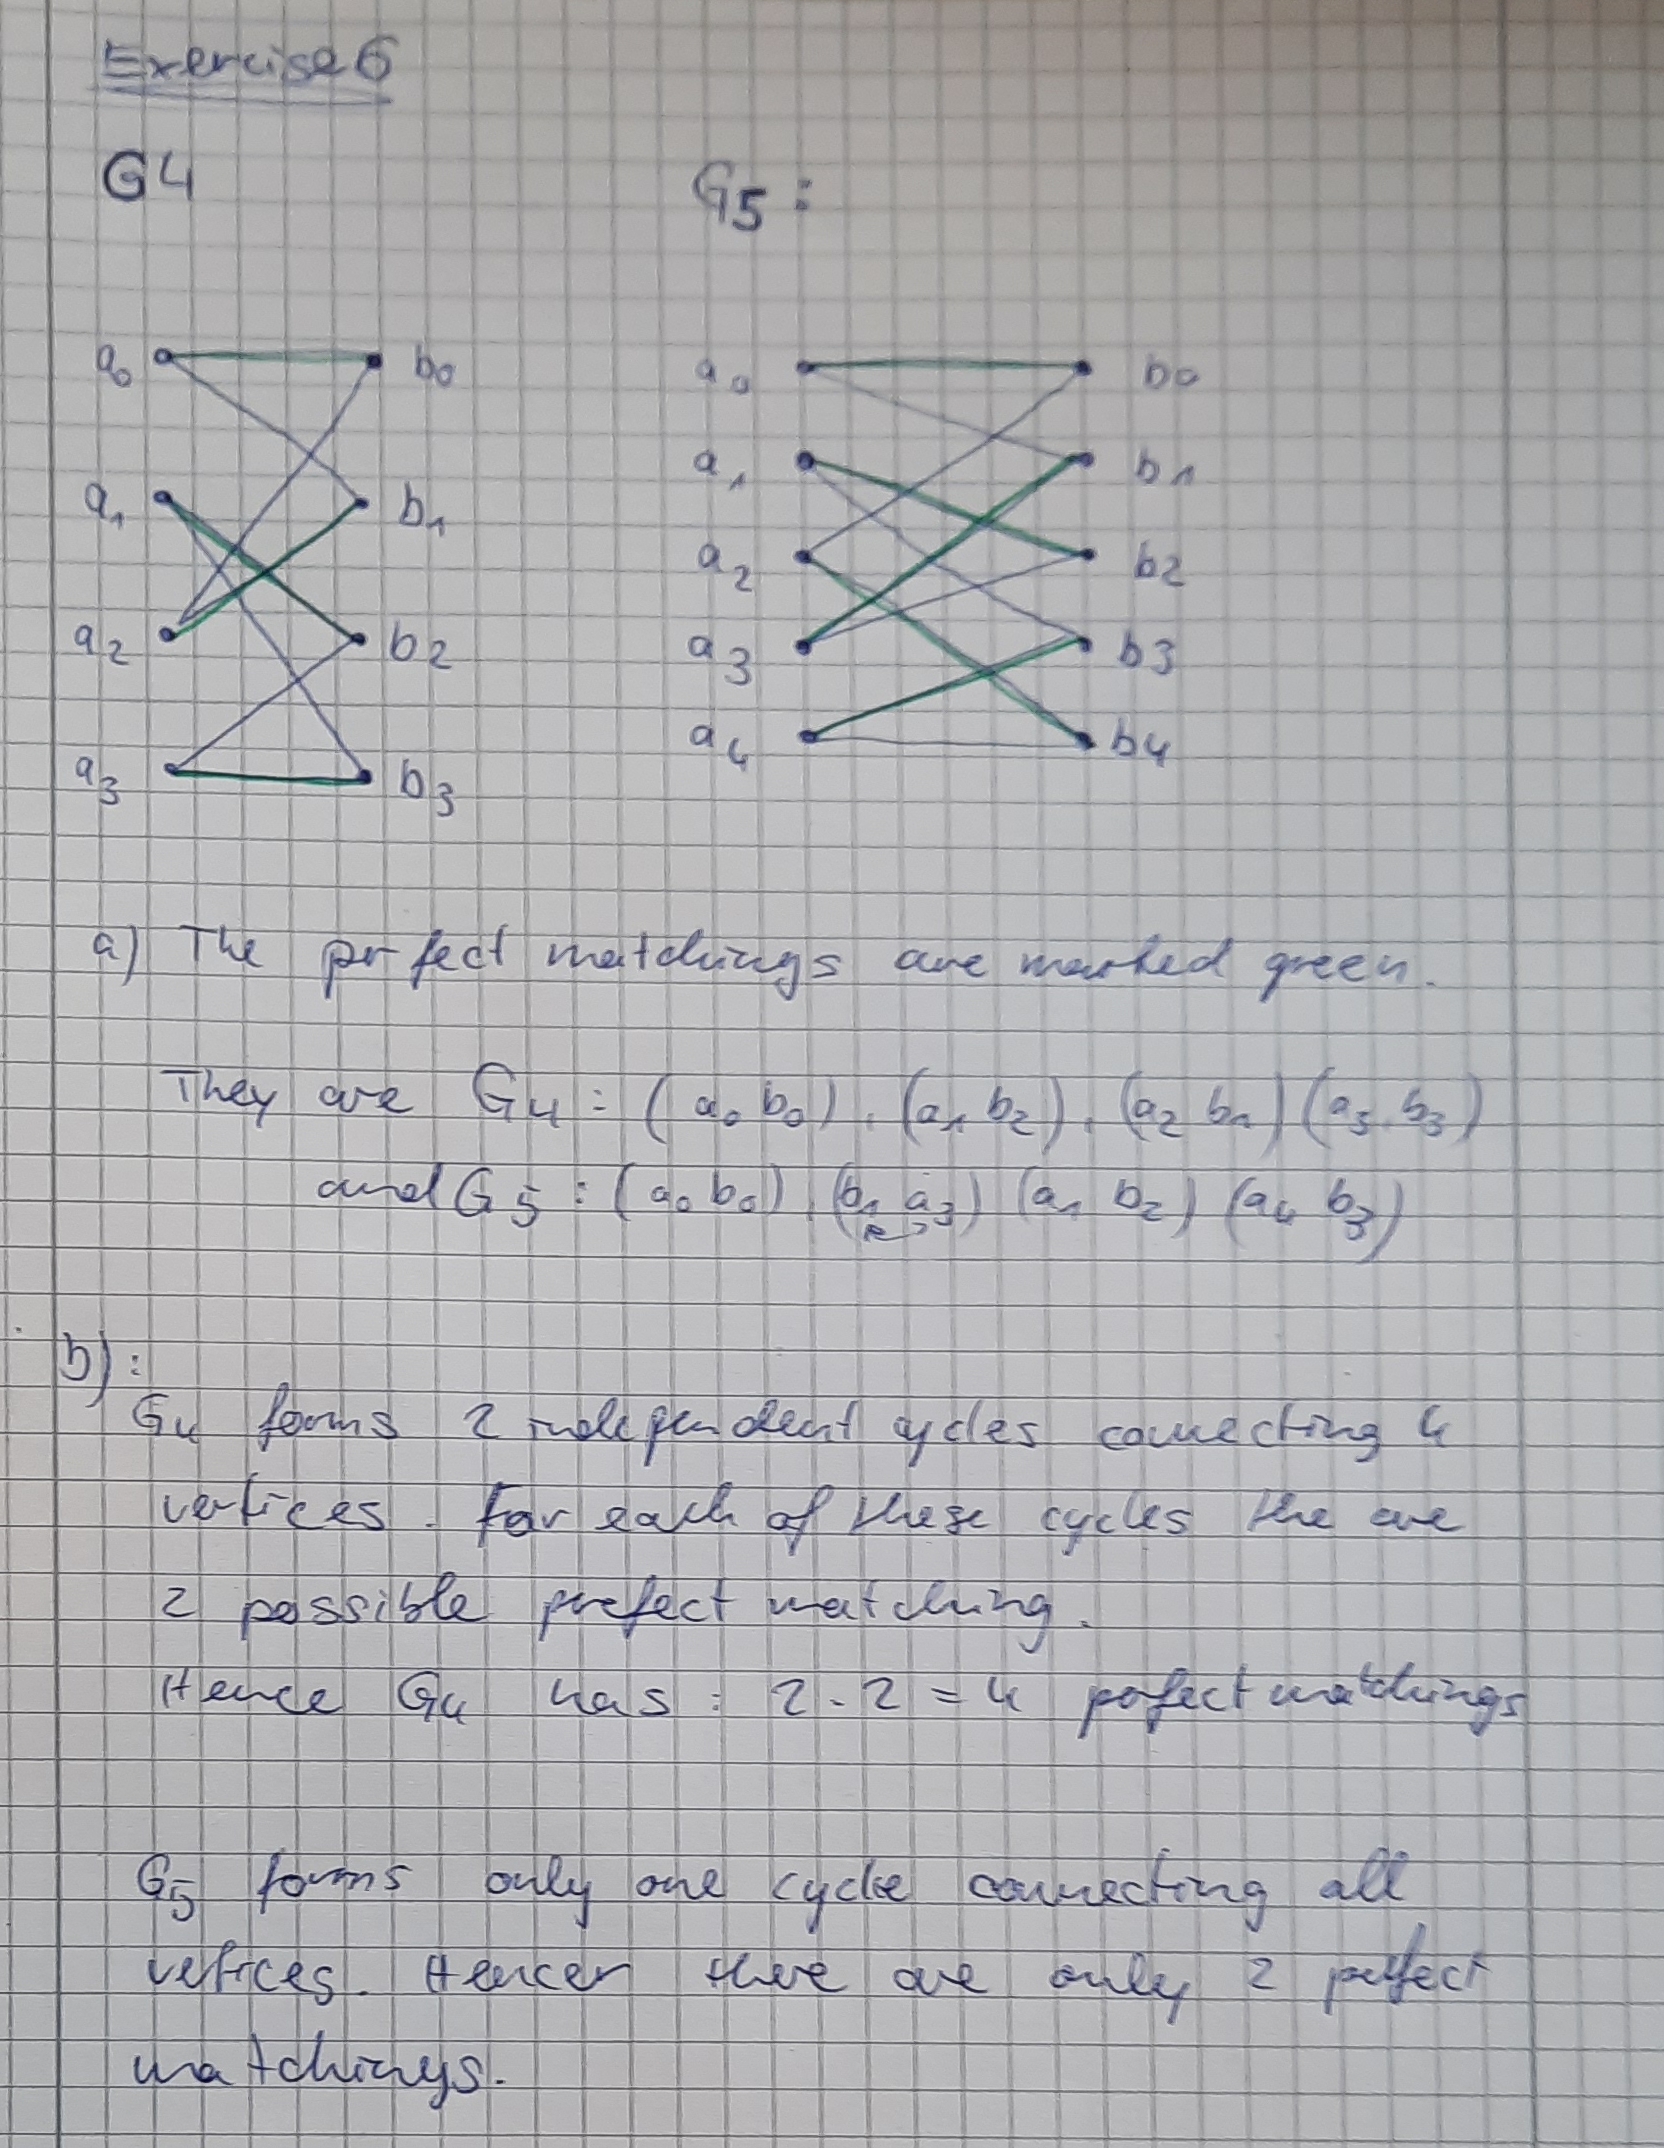 Exercise 6
G4 G5 :
a0 b0 a0 b0
a1 b1 a1 b1
a2 b2 a2 b2
a3 b3 a3 b3
a4 b4
a) The prfect matchings are marked green.
They are G4 : (a0 b0), (a1 b2), (a2 b1) (a3, b3)
and G5 : (a0 b0), (b1 a3) (a1 b2) (a4 b3)
b) :
G4 forms 2 independent cycles connecting 4
vertices. For each of these cycles the are
2 possible prefect matching.
Hence G4 has : 2 · 2 = 4 pefect matchings
G5 forms only one cycle connecting all
vetices. Hencer there are only 2 pefect
matchings.